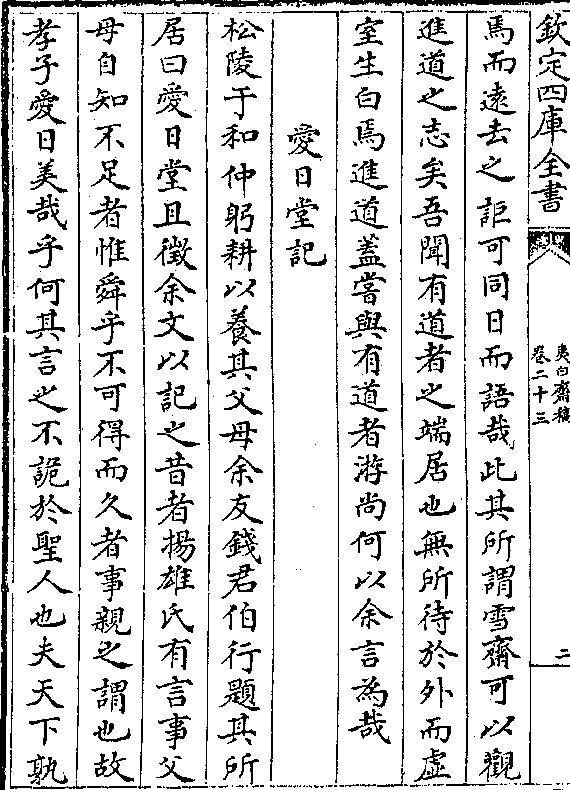 欽定四庫全書
夷白齋稿
卷二十三
二
焉而遠去之詎可同日而語哉此其所謂雪齋可以觀
進道之志矣吾聞有道者之端居也無所待於外而虛
室生白焉進道蓋嘗與有道者游尚何以余言為哉
愛日堂記
松陵于和仲躬耕以養其父母余友錢君伯行題其所
居曰愛日堂且徵余文以記之昔者揚雄氏有言事父
母自知不足者惟舜乎不可得而久者事親之謂也故
孝子愛日美哉乎何其言之不詭於聖人也夫天下孰